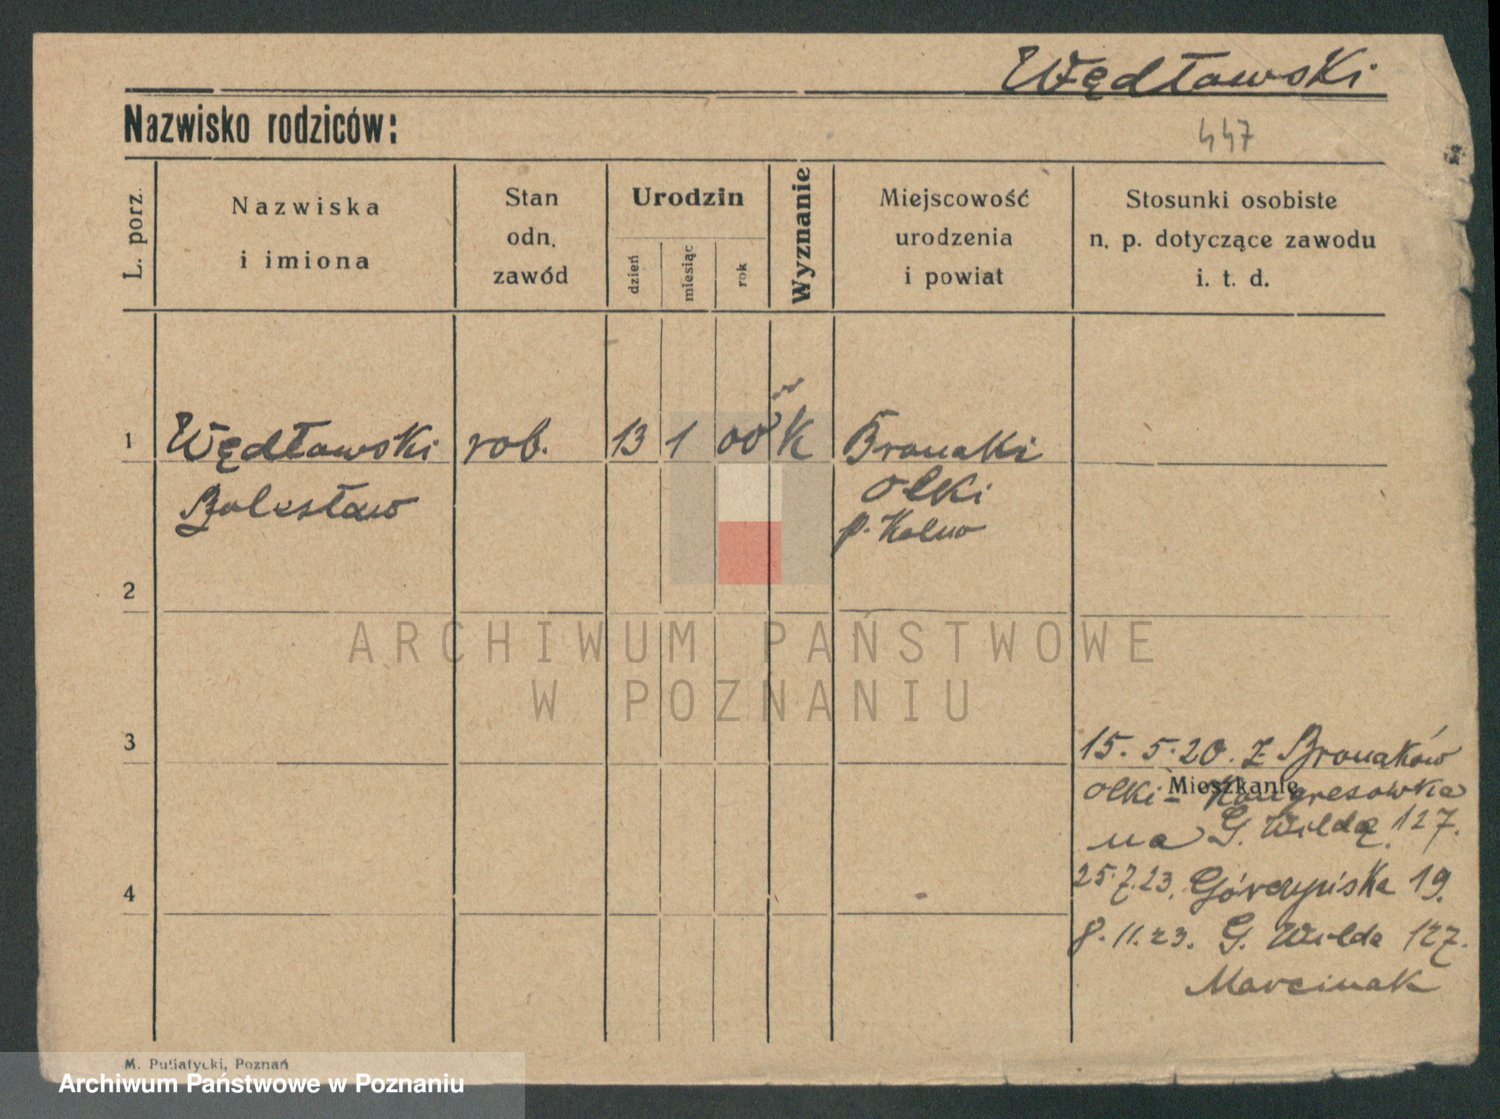 Wędławski
Nazwisko rodziców:
447
L. porz.
Nazwiska
i imiona
Stan
odn.
zawód
Urodzin
dzień
miesiąc
rok
Wyznanie
Miejscowość
urodzenia
i powiat
Stosunki osobiste
n. p. dotyczące zawodu
i. t. d.
1 Wędławski rob. 13 1 00 K Bronaki
Bolesław Olki
p. Kolno
2
ARCHIWUM PAŃSTWOWE
W POZNANIU
3
15. 5. 20. z Bronaków
Mieszkanie
Olki - Kongresówka
na G. Wildę 127.
25.7.23. Górczyńska 19.
4
8. 11. 23. G. Wilda 127.
Marciniak
M. Putiatycki, Poznań
Archiwum Państwowe w Poznaniu